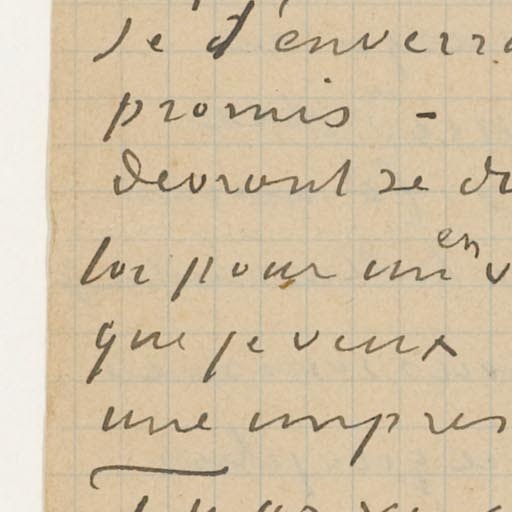 Je t'enverra
promis -
devront se du
toi pour un en v
que je veux
une impres